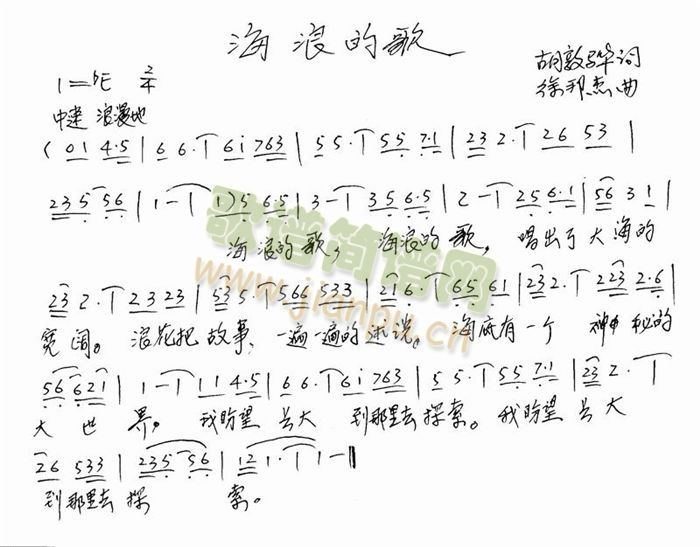 海浪的歌
胡敦骅词
1=bE 2/4
徐邦杰曲
中速 浪漫地
( 01 4·5 | 6 6· 6i 763 | 5 5· 55 7·1 | 23 2· 26 53 |
235 56 | 1 - 1)5 6·5 | 3 - 35 6·5 | 2 - 25 6·1 | 56 3 1 |
海浪的歌, 海浪的歌, 唱出了大海的
23 2· 23 23 | 53 5· 566 533 | 216· 65 61 | 232· 223 2·6 |
宽阔。 浪花把故事, 一遍一遍的述说。 海底有一个 神秘的
56 621 | 1 - 11 4·5 | 66· 6i 763 | 5 5· 55 7·1 | 23 2·
大世界。 我盼望长大 到那里去探索。 我盼望长大
26 533 | 235 56 | 12 1· 1 - ‖
到那里去探索。
歌谱简谱网
www.jianpu.cn